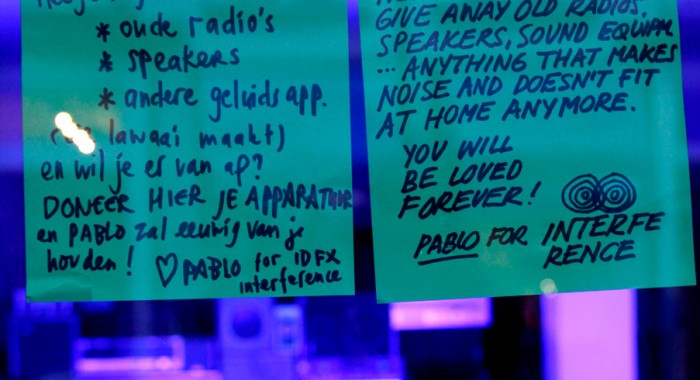 * oude radio's
* speakers
* andere geluidsapp.
lawaai maakt)
en wil je er van af?
DONEER HIER JE APPARATUUR
en PABLO zal eeuwig van je
houden! ♡ PABLO for IDFX
interference
GIVE AWAY OLD RADIOS,
SPEAKERS, SOUND EQUIPM.
... ANYTHING THAT MAKES
NOISE AND DOESN'T FIT
AT HOME ANYMORE.
YOU WILL
BE LOVED
FOREVER!
PABLO FOR INTERFE
RENCE